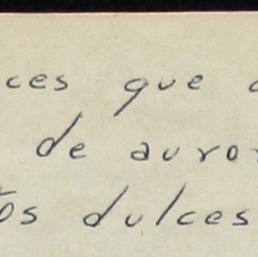 ces que
de auro
os dulces